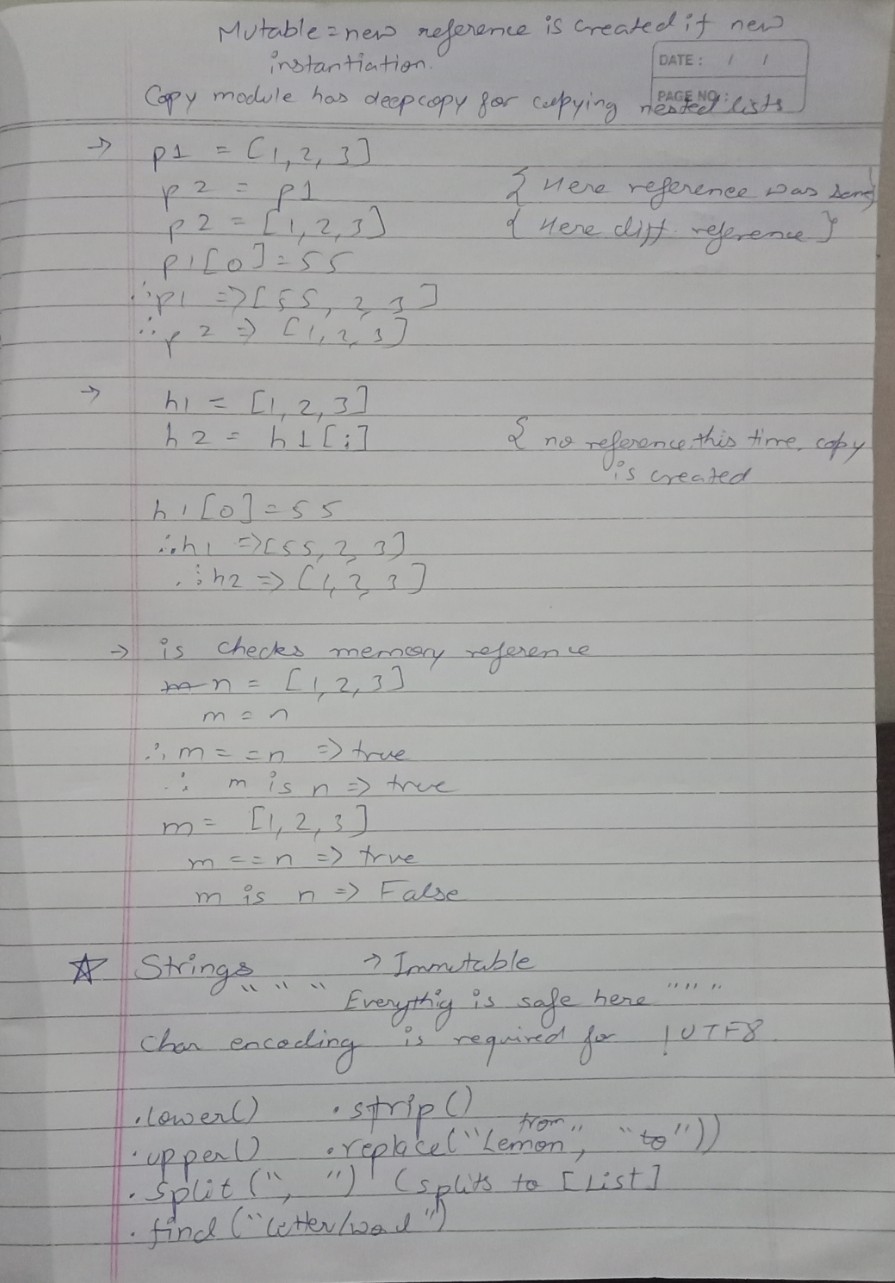 Mutable = new reference is created if new
instantiation.
DATE : / /
PAGE NO. :
Copy module has deepcopy for copying nested lists
→ p1 = [1, 2, 3]
p2 = p1 { Here reference was
p2 = [1, 2, 3] { Here diff. reference }
p1[0] = 55
∴ p1 => [55, 2, 3]
∴ p2 => [1, 2, 3]
→ h1 = [1, 2, 3]
h2 = h1[:] { no reference this time. copy
is created
h1[0] = 55
∴ h1 => [55, 2, 3]
∴ h2 => [1, 2, 3]
→ is checks memory reference
n = [1, 2, 3]
m = n
∴ m == n => true
∴ m is n => true
m = [1, 2, 3]
m == n => true
m is n => False
☆ Strings → Immutable
" " " Everythig is safe here " " " "
Char encoding is required for !UTF8.
.lower() .strip()
from
.upper() .replace("Lemon", "to"))
.split(", ") (splits to [List]
.find("letter/word")